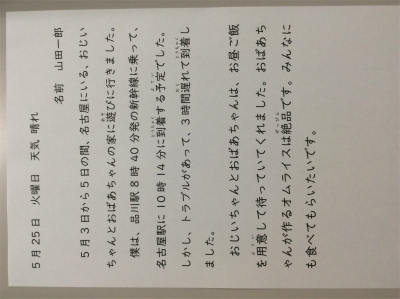 5月25日　火曜日　天気　晴れ
名前　山田一郎
5月3日から5日の間、名古屋にいる、おじい
ちゃんとおばあちゃんの家に遊びに行きました。
僕は、品川駅8時40分発の新幹線に乗って、
名古屋駅に10時14分に到着する予定でした。
しかし、トラブルがあって、3時間遅れて到着し
ました。
おじいちゃんとおばあちゃんは、お昼ご飯
を用意して待っていてくれました。おばあち
ゃんが作るオムライスは絶品です。みんなに
も食べてもらいたいです。